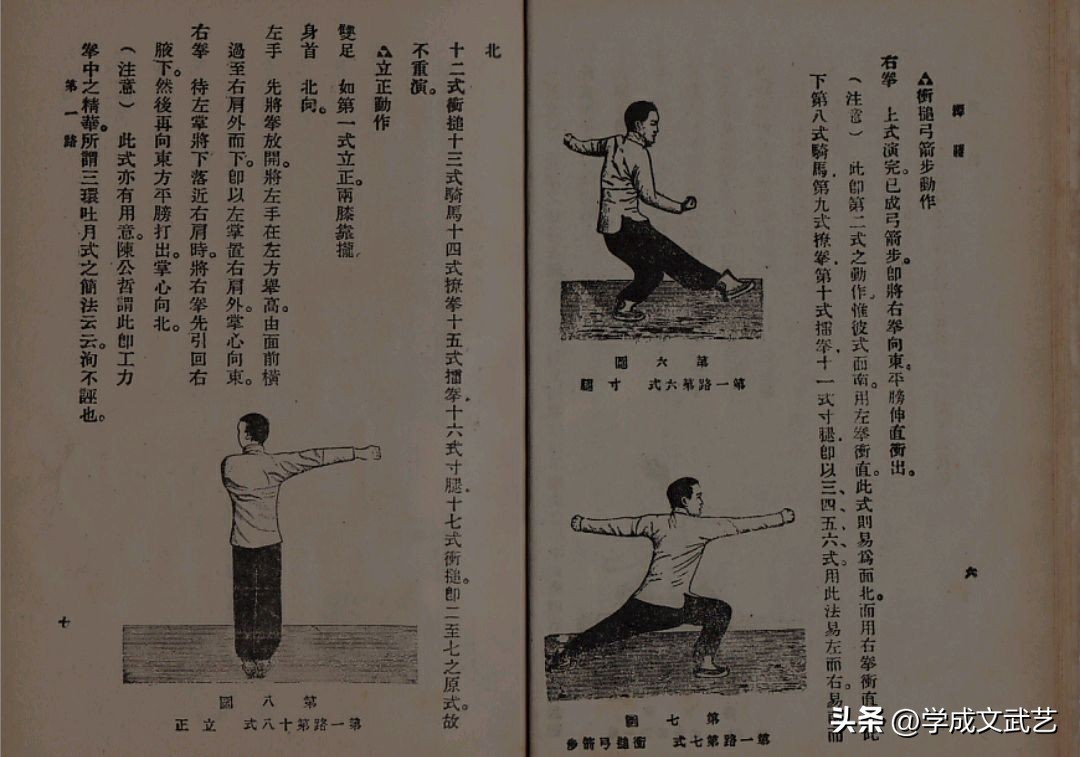 腿
△衝搥弓箭步動作
右拳 上式演完。已成弓箭步。卽將右拳向東。平膀伸直衝出。
（注意） 此卽第二式之動作。惟彼式面南。用左拳衝直。此式則易爲面北。而用右拳衝直 此
下第八式騎馬。第九式撩拳。第十式擂拳。十一式寸腿。卽以三、四、五、六式。用此法易左而右。易 而
第六圖
第一路第六式 寸腿
第七圖
第一路第七式 衝搥弓箭步
六
北
十二式衝搥十三式騎馬十四式撩拳十五式擂拳。十六式寸腿。十七式衝搥。卽二至七之原式。故
不重演。
△立正動作
雙足 如第一式立正。兩膝靠攏。
身首 北向。
左手 先將拳放開。將左手在左方舉高。由面前橫
過至右肩外而下。卽以左掌置右肩外。掌心向東。
右拳 待左掌將下落近右肩時。將右拳先引回右
腋下。然後再向東方平膀打出。掌心向北。
（注意） 此式亦有用意。陳公哲謂此卽工力
拳中之精華。所謂三環吐月式之簡法云云。洵不誣也。
第八圖
第一路第十八式 立正
第一路
七
头条 @学成文武艺